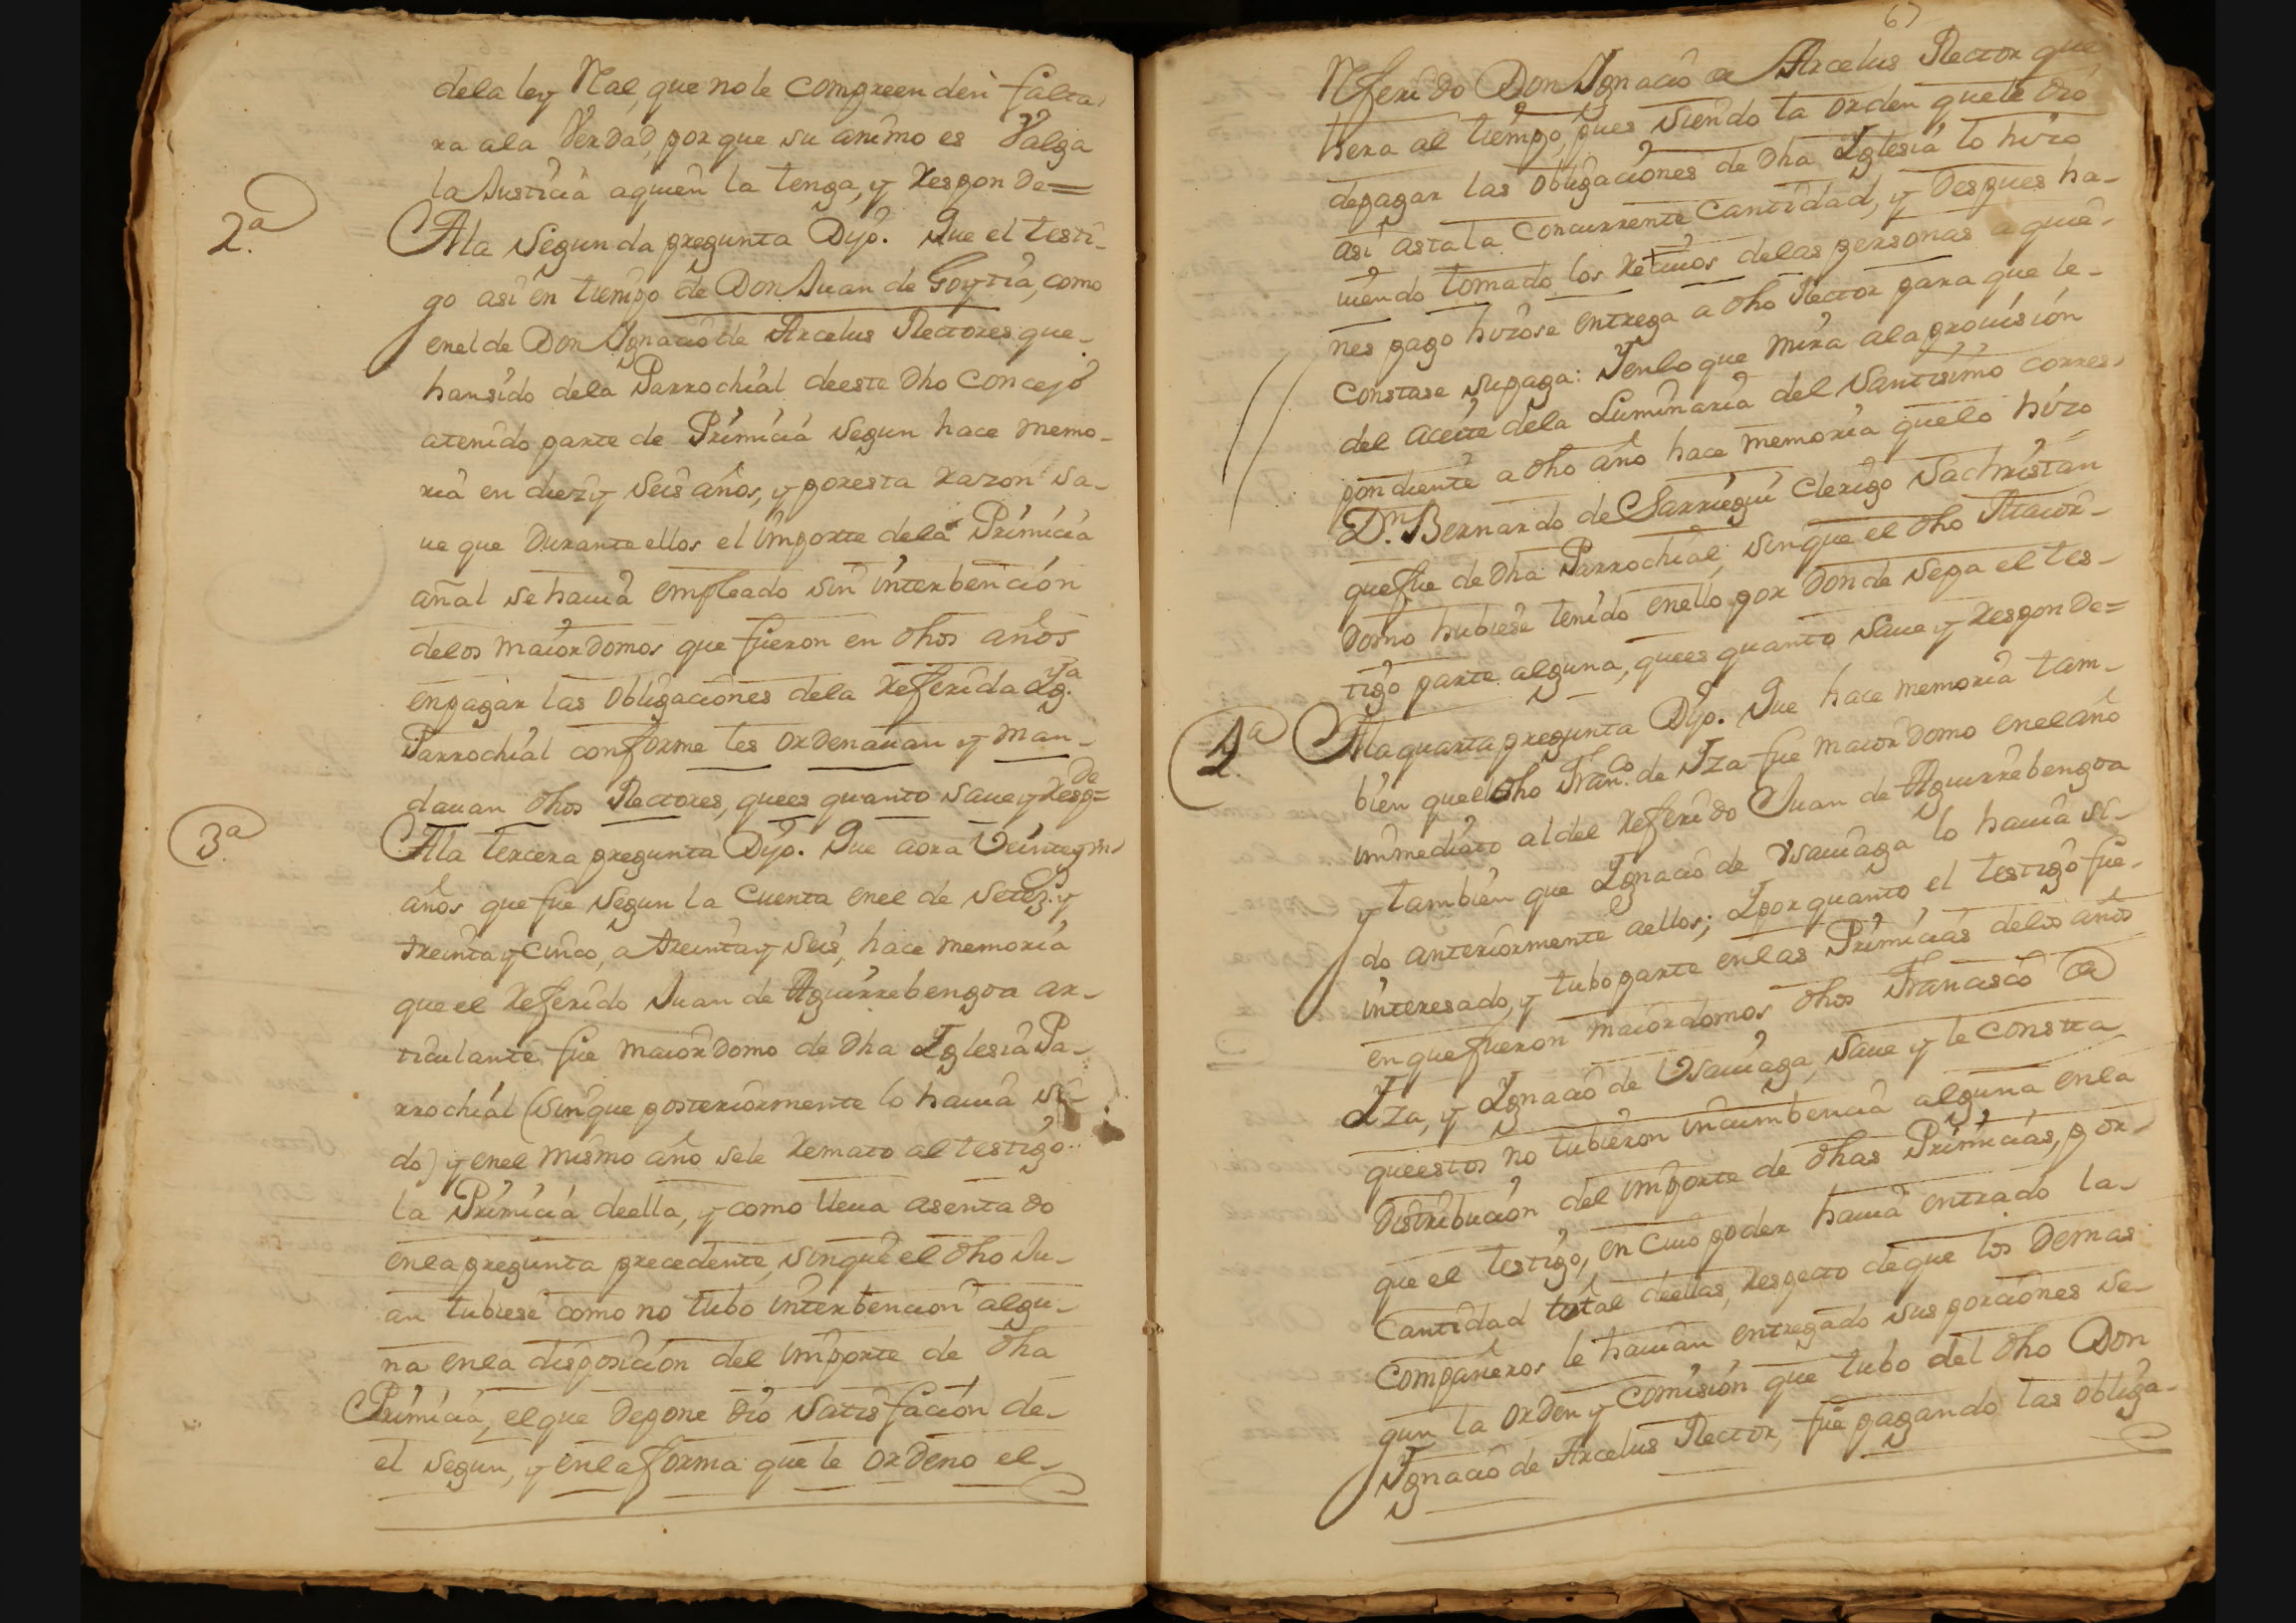 dela ley Rl al, que no le comprenden faltar
ra ala Verdad, porque su animo es Valga
la Justicia aquien la tenga, y Responde=
2.ª
A la Segunda pregunta Dijo. Que el testi-
go asi en tiempo de Don Juan de Goytia, como
enel de Don Ignacio de Arcelus Rectores que-
hansido dela Parrochial deeste dho Concejo
atenido parte de Primicia segun hace memo-
ria en diez y seis años, y poresta razon sa-
ue que Durante ellos el importe dela Primicia
añal sehauia empleado sin interbención
delos maiordomos que fueron en dhos años
enpagar las Obligaciones dela Referida Ygª.
Parrochial conforme les ordenauan y man-
dauan dhos Rectores, quees quanto saue y Respde=
3.ª
A la tercera pregunta Dijo. Que aora Veinte y
años que fue segun la Cuenta enel de Setez. y
treinta y Cinco, a treinta y seis, hace memoria
queel Referido Juan de Aguirrebengoa ar-
ticulante fue maiordomo de dha Iglesia Pa-
rrochial (sinque posteriormente lo hauia si-
do) y enel mismo año sele Remato al testigo
la Primicia deella, y como lleua asentado
enla pregunta precedente, sinque el dho Ju-
an tubiese como no tubo interbencion algu-
na enla disposición del importe de dha
Primicia, elque depone dio satisfación de-
el segun, y enla forma que le ordeno el-
67
Referido Don Ignacio de Arcelus Rector que
hera al tiempo, pues siendo la orden quele dio
depagar las obligaciones de dha Iglesia lo hizo
asi asta la Concurrente Cantidad, y despues ha-
uiendo tomado los Reciuos delas personas a quie-
nes pago hizose entrega a dho Rector para que le-
Constase supaga: Yenlo que mira ala prouisión
del aceite dela Luminaria del Santisimo corres-
pondiente a dho año hace memoria quelo hizo
D.n Bernardo de Sarriegui Clerigo Sachristan
quefue de dha Parrochial, sinque el dho Maior-
domo hubiese tenido enello por donde sepa el tes-
tigo parte alguna, quees quanto saue y Responde=
4.ª
A la quarta pregunta Dijo. Que hace memoria tam-
bien queel dho Fran.co de Iza fue maiordomo enel año
immediato aldel Referido Juan de Aguirrebengoa
y tambien que Ignacio de Vsauiaga lo hauia si-
do anteriormente aellos; Yporquanto el testigo fue-
interesado, y tubo parte enlas Primicias delos años
en que fueron maiordomos dhos Francisco de
Iza, y Ignacio de Vsauiaga, saue y le consta
queestos no tubieron incumbencia alguna enla
Distribución del importe de dhas Primicias, por-
que el testigo, en Cuio poder hauia entrado la-
Cantidad total deellas, respecto deque los Demas
Compañeros le hauian entregado sus porciones se-
gun la orden y comisión que tubo del dho Don
Ignacio de Arcelus Rector, fue pagando las obliga-